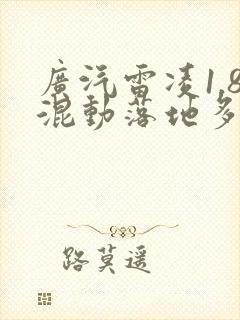 廣汽雷凌1.8
混動落地多
路莫遥